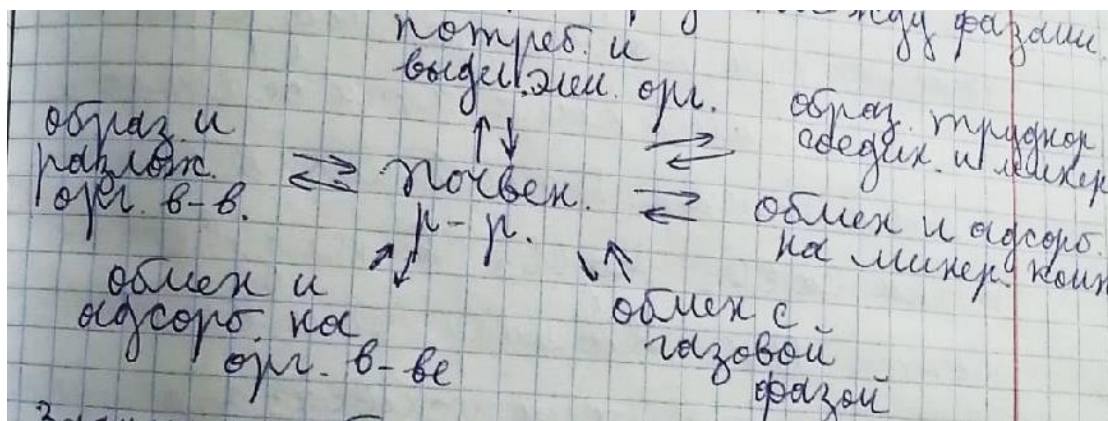 между фазами.
потреб. и
выдел. жив. орг.
образ. труднор
соедин. и минер
образ. и
разлож.
орг. в-в.
почвен.
р-р.
обмен и адсорб.
на минер. комп
обмен и
адсорб. на
орг. в-ве
обмен с
газовой
фазой